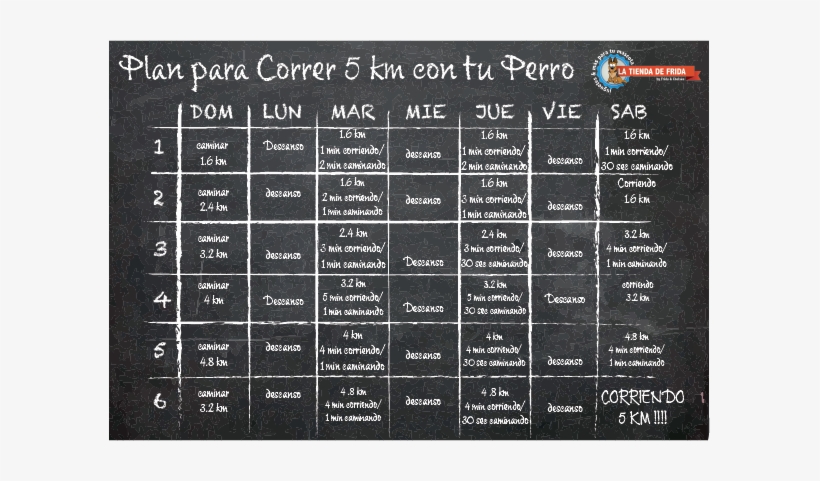 Plan para Correr 5 km con tu Perro
LA TIENDA DE FRIDA
DOM LUN MAR MIE JUE VIE SAB
1
caminar
1.6 km
Descanso
1.6 km
1 min corriendo/
2 min caminando
descanso
1.6 km
1 min corriendo/
2 min caminando
descanso
1.6 km
1 min corriendo/
30 sec caminando
2
caminar
2.4 km
descanso
1.6 km
2 min corriendo/
1 min caminando
descanso
1.6 km
3 min corriendo/
1 min caminando
descanso
Corriendo
1.6 km
3
caminar
3.2 km
descanso
2.4 km
3 min corriendo/
1 min caminando
Descanso
2.4 km
3 min corriendo/
30 sec caminando
descanso
3.2 km
4 min corriendo/
1 min caminando
4
caminar
4 km
Descanso
3.2 km
5 min corriendo/
1 min caminando
Descanso
3.2 km
5 min corriendo/
30 sec caminando
Descanso
corriendo
3.2 km
5
caminar
4.8 km
descanso
4 km
4 min corriendo/
1 min caminando
descanso
4 km
4 min corriendo/
30 sec caminando
descanso
4.8 km
4 min corriendo/
1 min caminando
6
caminar
3.2 km
descanso
4.8 km
4 min corriendo/
1 min caminando
descanso
4.8 km
4 min corriendo/
30 sec caminando
descanso
CORRIENDO
5 KM !!!!